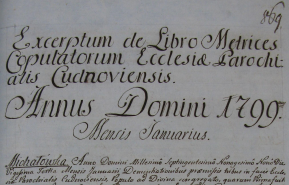 869.
Excerptum de Libro Metrices
Coputatorum Ecclesiæ Parochi-
alis Cudnoviensis.
Annus Domini 1799.
Mensis Januarius.
Michałowska Anno Domini Millesimo Septingentesimo Nonagesimo Nono Die
Tertia Mensis Januarii Denuntiationibus præmissis tribus in facie Eccle-
Parochialis Cudnoviensis Populo ad Divina congregato, quarum